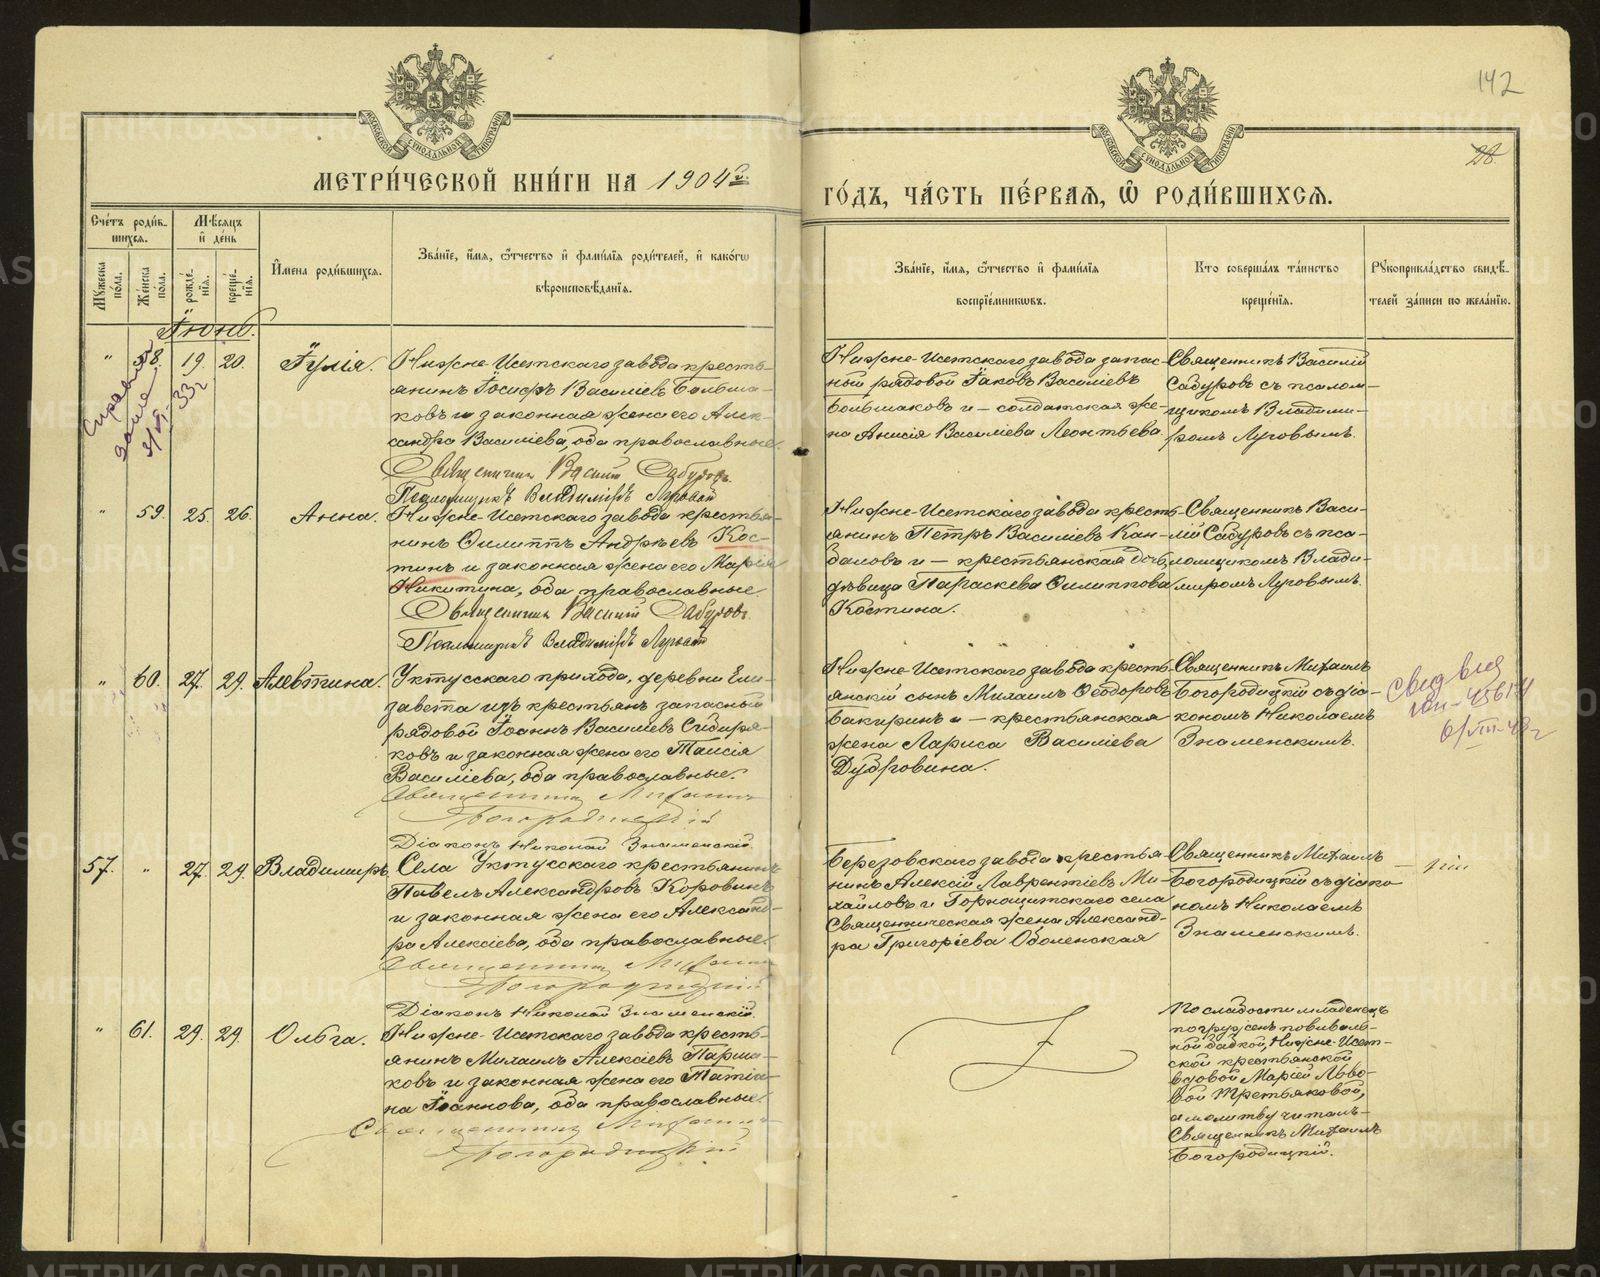 142
28.
МОСКОВСКОЙ СѴНОДАЛЬНОЙ ТИПОГРАФІИ
МОСКОВСКОЙ СѴНОДАЛЬНОЙ ТИПОГРАФІИ
МЕТРИ́ЧЕСКОЙ КНИ́ГИ НА 1904 г.
ГО́ДЪ, ЧА́СТЬ ПЕ́РВАЯ, Ѡ҆ РОДИ́ВШИХСЯ.
Сче́тъ роди́в-
шихся.
Мѣ́сяцъ
и҆ де́нь
Му́жеска
по́ла.
Же́нска
по́ла.
рожде́-
нїя.
креще́-
нїя.
И҆мена роди́вшихся.
Зва́нїе, и҆́мя, ѻ҆́тчество и҆ фами́лїя роди́телей, и҆ како́гѡ
вѣроисповѣ́данїя.
Зва́нїе, и҆́мя, ѻ҆́тчество и҆ фами́лїя
воспрїе́мникѡвъ.
Кто соверша́лъ та́инство
креще́нїя.
Рукоприкла́дство свидѣ́-
телей за́писи по жела́нїю.
Іюнь.
" 58. 19 20. Іулія.
Нижне-Исетскаго завода кресть-
янинъ Іосифъ Василіевъ Больша-
ковъ и законная жена его Алек-
сандра Василіева, оба православные.
Священникъ Василій Сабуровъ.
Псаломщикъ Владиміръ Луговой
Нижне-Исетскаго завода запас-
ный рядовой Іаковъ Василіевъ
Большаковъ и – солдатская же-
на Анисія Василіева Леонтьева
Священникъ Василій
Сабуровъ съ псалом-
щикомъ Владими-
ромъ Луговымъ.
" 59. 25. 26. Анна.
Нижне-Исетскаго завода крестья-
нинъ Филиппъ Андреевъ Кос-
тинъ и законная жена его Марія
Никитина, оба православные.
Священникъ Василій Сабуровъ.
Псаломщикъ Владиміръ Луговой
Нижне-Исетскаго завода кресть-
янинъ Петръ Василіевъ Кан-
баловъ и – крестьянская дочь
дѣвица Параскева Филиппова
Костина.
Священникъ Васи-
лій Сабуровъ съ пса-
ломщикомъ Влади-
миромъ Луговымъ.
" 60. 27. 29. Алевтина.
Уктусскаго прихода, деревни Ели-
завета изъ крестьянъ запасный
рядовой Іоаннъ Василіевъ Сибиря-
ковъ и законная жена его Таисія
Василіева, оба православные.
Священникъ Михаилъ
Богородицкій
Діаконъ Николай Знаменскій.
Нижне-Исетскаго завода кресть-
янскій сынъ Михаилъ Ѳеодоровъ
Бакиринъ и – крестьянская
жена Лариса Василіева
Дубровина.
Священникъ Михаилъ
Богородицкій съ діа-
кономъ Николаемъ
Знаменскимъ.
57. " 27. 29. Владиміръ.
Села Уктусскаго крестьянинъ
Павелъ Александровъ Коровинъ
и законная жена его Александ-
ра Алексіева, оба православные.
Священникъ Михаилъ
Богородицкій
Діаконъ Николай Знаменскій.
Березовскаго завода крестья-
нинъ Алексій Лаврентіевъ Ми-
хайловъ и Горнощитскаго села
Священническая жена Александ-
ра Григоріева Оболенская
Священникъ Михаилъ
Богородицкій съ діако-
номъ Николаемъ
Знаменскимъ.
" 61. 29. 29. Ольга.
Нижне-Исетскаго завода кресть-
янинъ Михаилъ Алексіевъ Парша-
ковъ и законная жена его Татіа-
на Іоаннова, оба православные.
Священникъ Михаилъ
Богородицкій
По слабости младенецъ
погруженъ повиваль-
ной бабкой, Нижне-Исет-
ской крестьянской
вдовой Маріей Льво-
вой Третьяковой,
а молитву читалъ
Священникъ Михаилъ
Богородицкій.
METRIKI.GASO-URAL.RU